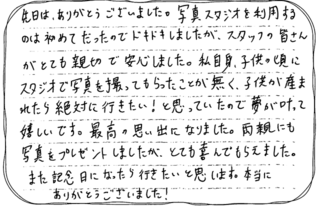 先日は、ありがとうございました。写真スタジオを利用する
のは初めてだったのでドキドキしましたが、スタッフの皆さん
がとても親切で安心しました。私自身、子供の頃に
スタジオで写真を撮ってもらったことが無く、子供が産ま
れたら絶対に行きたい！と思っていたので夢が叶って
嬉しいです。最高の思い出になりました。両親にも
写真をプレゼントしましたが、とても喜んでもらえました。
また記念日になったら行きたいと思います。本当に
ありがとうございました！